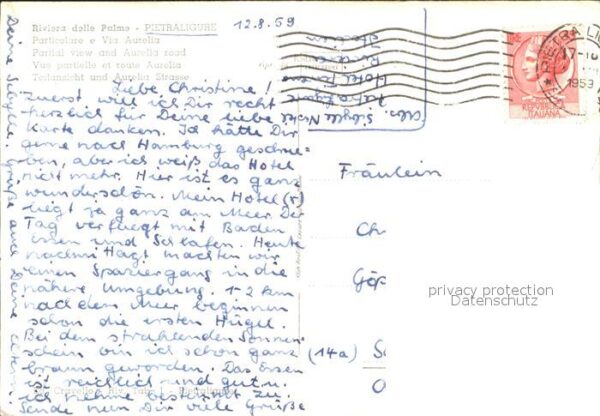 Riviera delle Palme - PIETRALIGURE
Particolare e Via Aurelia
Partial view and Aurelia road
Vue partielle et route Aurelia
Teilansicht und Aurelia Strasse
12.8.59
Liebe Christine!
Zuerst will ich Dir recht
herzlich für Deine liebe
Karte danken. Ich hätte Dir
gerne nach Hamburg geschrie-
ben, aber ich weiß das Hotel
nicht mehr. Hier ist es ganz
wunderschön. Mein Hotel (r)
liegt ja ganz am Meer. De
Tag verfliegt mit Baden
Essen und Schlafen. Heute
nachmittag machten wir
einen Spaziergang in die
nähere Umgebung. 1-2 km
nach dem Meer beginnen
schon die ersten Hügel.
Bei dem strahlenden Sonnen-
schein bin ich schon ganz
braun geworden. Das Essen
ist reichlich und gut u.
ich nehme bestimmt zu.
Sende nun Dir viele Grüße
Deine Sibylle. Grüße auch Deine Eltern.
Abs. Sibylle
Pietra Ligure
Hotel
Riviera
Italien
REPUBBLICA
ITALIANA
PIETRA LI
17-18
Fräulein
Ch
Göp
(14a) S
privacy protection
Datenschutz